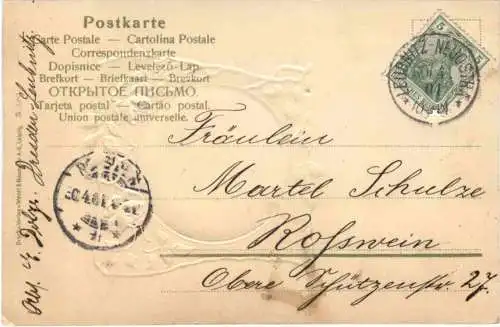 Postkarte
Carte Postale — Cartolina Postale
Correspondenzkarte
Dopisnice — Levelező-Lap
Brefkort — Briefkaart — Brevkort
ОТКРЫТОЕ ПИСЬМО.
Tarjeta postal — Cartão postal.
Union postale universelle.
5
5
Fräulein
Martel Schulze
Roßwein
Obere Schützenstr. 27.
Dresden Leubnitz.